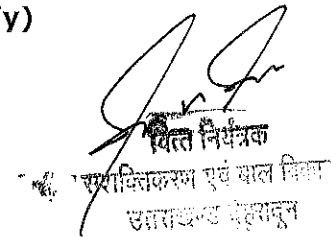 y)
वित्त नियंत्रक
सशक्तिकरण एवं बाल विका
उत्तराखण्ड देहरादून